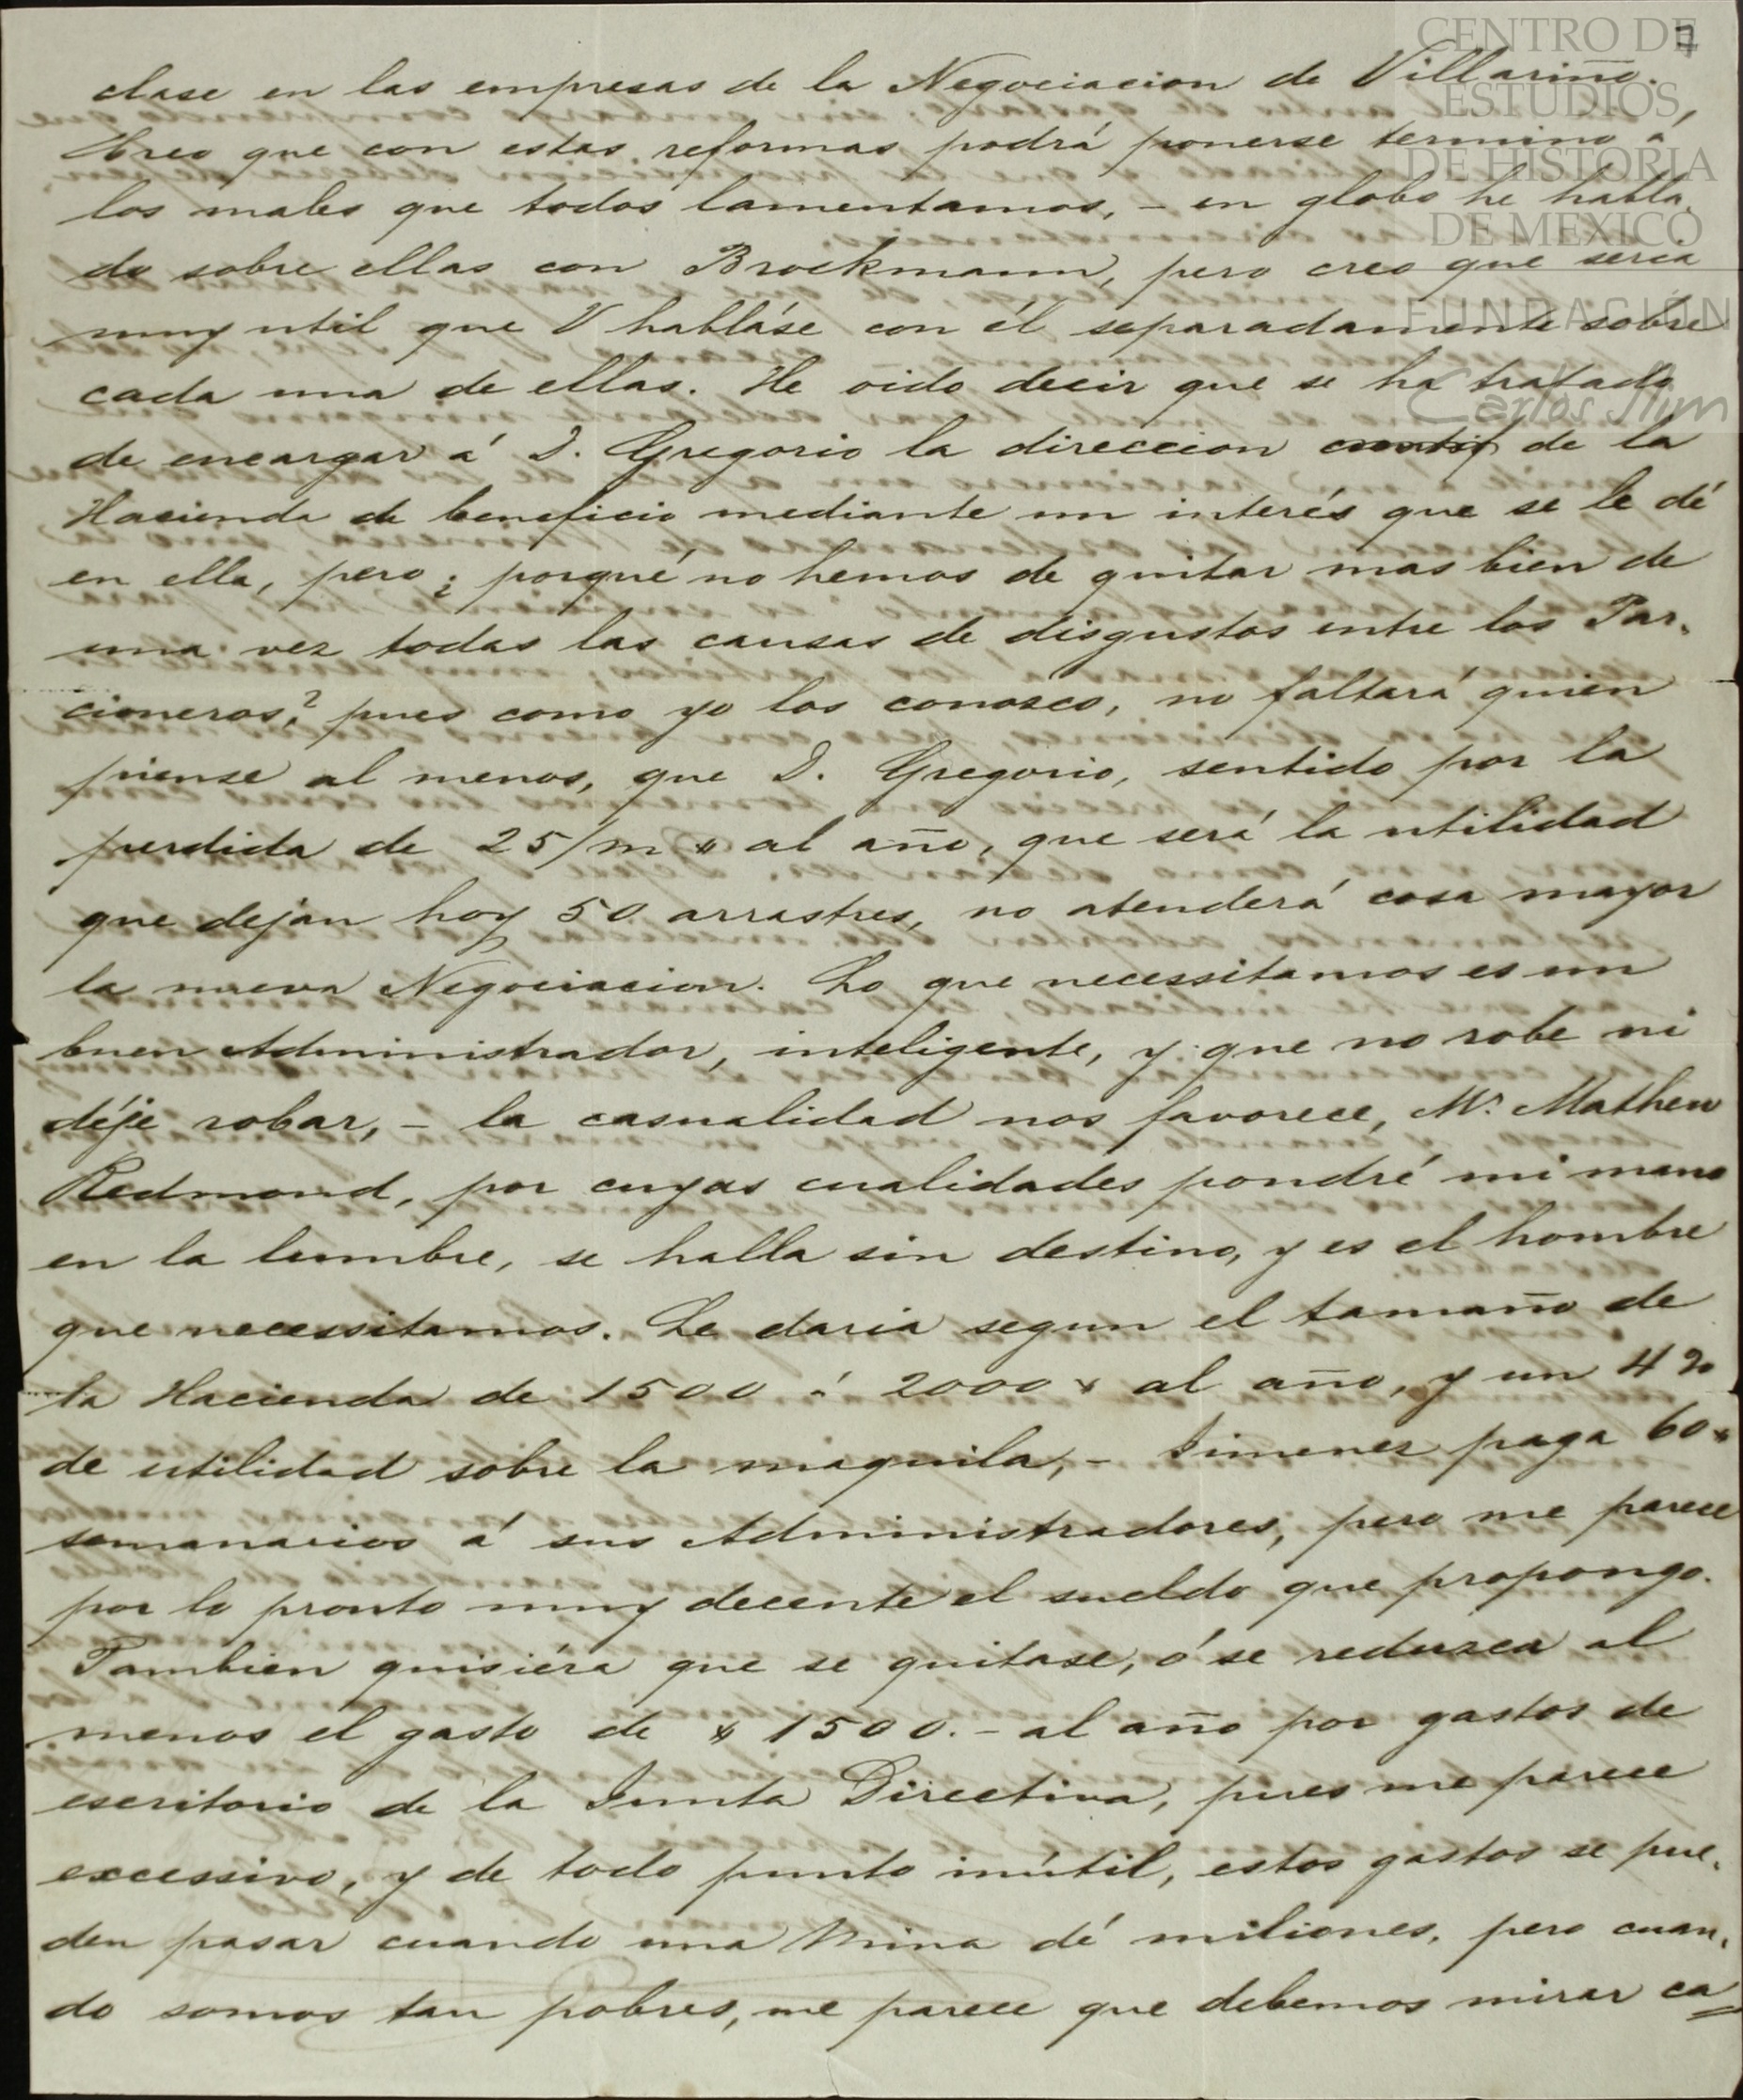 7
CENTRO DE
ESTUDIOS
DE HISTORIA
DE MEXICO
FUNDACIÓN
Carlos Slim
clase en las empresas de la Negociacion de Villariño.
Creo que con estas reformas podrá ponerse termino á
los males que todos lamentamos, – en globo he habla.
do sobre ellas con Brockmann, pero creo que seria
muy util que V habláse con él separadamente sobre
cada una de ellas. He oido decir que se ha tratado
de encargar á D. Gregorio la direccion de la
Hacienda de beneficio mediante un interés que se le dé
en ella, pero ¿ porqué no hemos de quitar mas bien de
una vez todas las causas de disgustos entre los Par.
cioneros? pues como yo los conosco, no faltará quien
piense al menos, que D. Gregorio, sentido por la
perdida de 25/m $ al año, que será la utilidad
que dejan hoy 50 arrastres, no atenderá cosa mayor
la nueva Negociacion. Lo que necessitamos es un
buen Administrador, inteligente, y que no robe ni
déje robar, – la casualidad nos favorece, Mr. Mathew
Redmond, por cuyas cualidades pondré mi mano
en la lumbre, se halla sin destino, y es el hombre
que necessitamos. Le daria segun el tamaño de
la Hacienda de 1500 á 2000 $ al año, y un 4 %
de utilidad sobre la maquila, – Jimenez paga 60 $
semanarios á sus Administradores, pero me parece
por lo pronto muy decente el sueldo que propongo.
Tambien quisiéra que se quitase, ó se reduzca al
menos el gasto de $ 1500. – al año por gastos de
escritorio de la Junta Directiva, pues me parece
excessivo, y de todo punto inútil, estos gastos se pue.
den pasar cuando una Mina dé miliones, pero cuan.
do somos tan pobres, me parece que debemos mirar ca=